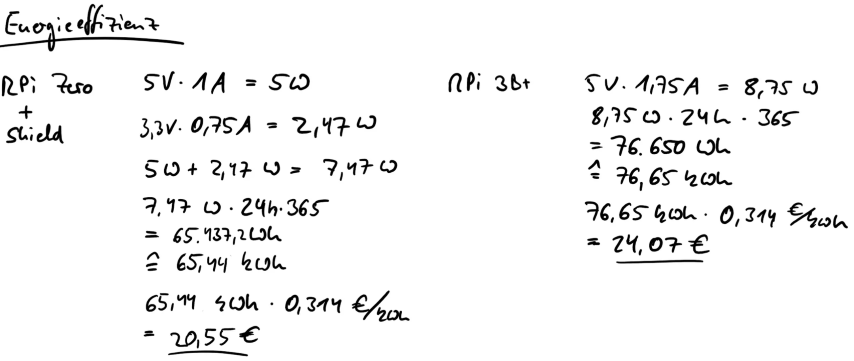 Energieeffizienz
RPi Zero
+
Shield
5V · 1A = 5W
3,3V · 0,75A = 2,47 W
5W + 2,47 W = 7,47 W
7,47 W · 24h·365
= 65.437,2 Wh
≙ 65,44 kWh
65,44 kWh · 0,314 €/kWh
= 20,55 €
RPi 3B+
5V · 1,75A = 8,75 W
8,75 W · 24h · 365
= 76.650 Wh
≙ 76,65 kWh
76,65 kWh · 0,314 €/kWh
= 24,07 €